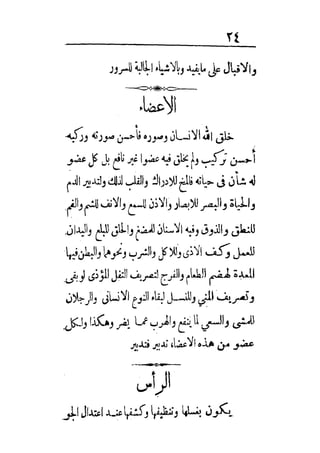 ٢٤
والاقبال على مايفيد وبالاشياء الجالبة للسرور
الاعضاء
خلق الله الانسان وصوره فأحسن صورته وركبه
أحسن تركيب ولم يخلق فيه عضوا غير نافع بل كل عضو
له شأن فى حياته فالمخ للادراك والقلب لذلك ولتدبير الدم
والحياة والبصر للابصار والاذن للسمع والانف للشم والفم
للنطق والذوق وفيه الاسنان للهضم والحلق للبلع واليدان
للعمل وكف الاذى وللاكل والشرب ونحوهما والبطن فيها
المعدة لهضم الطعام والفرج لتصريف الثفل المؤذى لو بقى
وتصريف المنى وللنسل لبقاء النوع الانسانى والرجلان
للمشى والسعى لما ينفع والهرب عما يضر وهكذا ولكل
عضو من هذه الاعضاء تدبير فتدبير
الرأس
يكون بغسلها وتنظيفها وكشفها عند اعتدال الجو